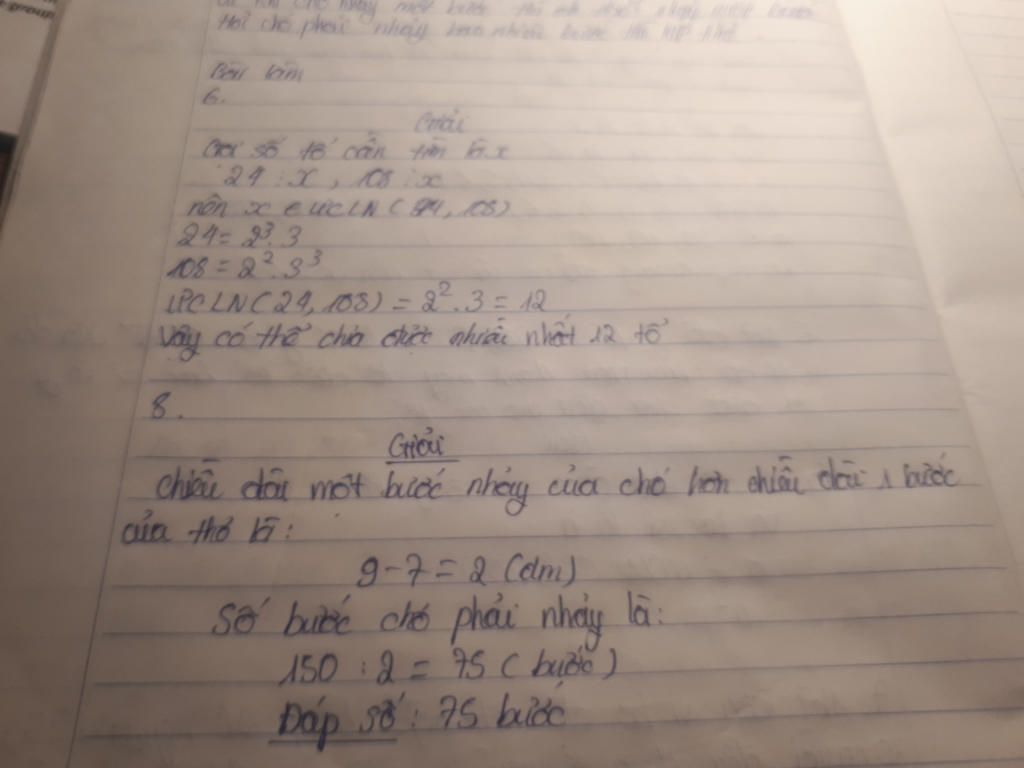 group
Hỏi chó phải nhảy bao nhiêu bước thì
Bài làm
6.
Giải
Gọi số tổ cần tìm là x
24 : x, 108 : x
nên x ∈ ƯCLN (24, 108)
24 = 2³. 3
108 = 2². 3³
ƯCLN (24, 108) = 2². 3 = 12
Vậy có thể chia được nhiều nhất 12 tổ
8.
Giải
Chiều dài một bước nhảy của chó hơn chiều dài 1 bước
của thỏ là:
9 - 7 = 2 (dm)
Số bước chó phải nhảy là:
150 : 2 = 75 (bước)
Đáp số: 75 bước